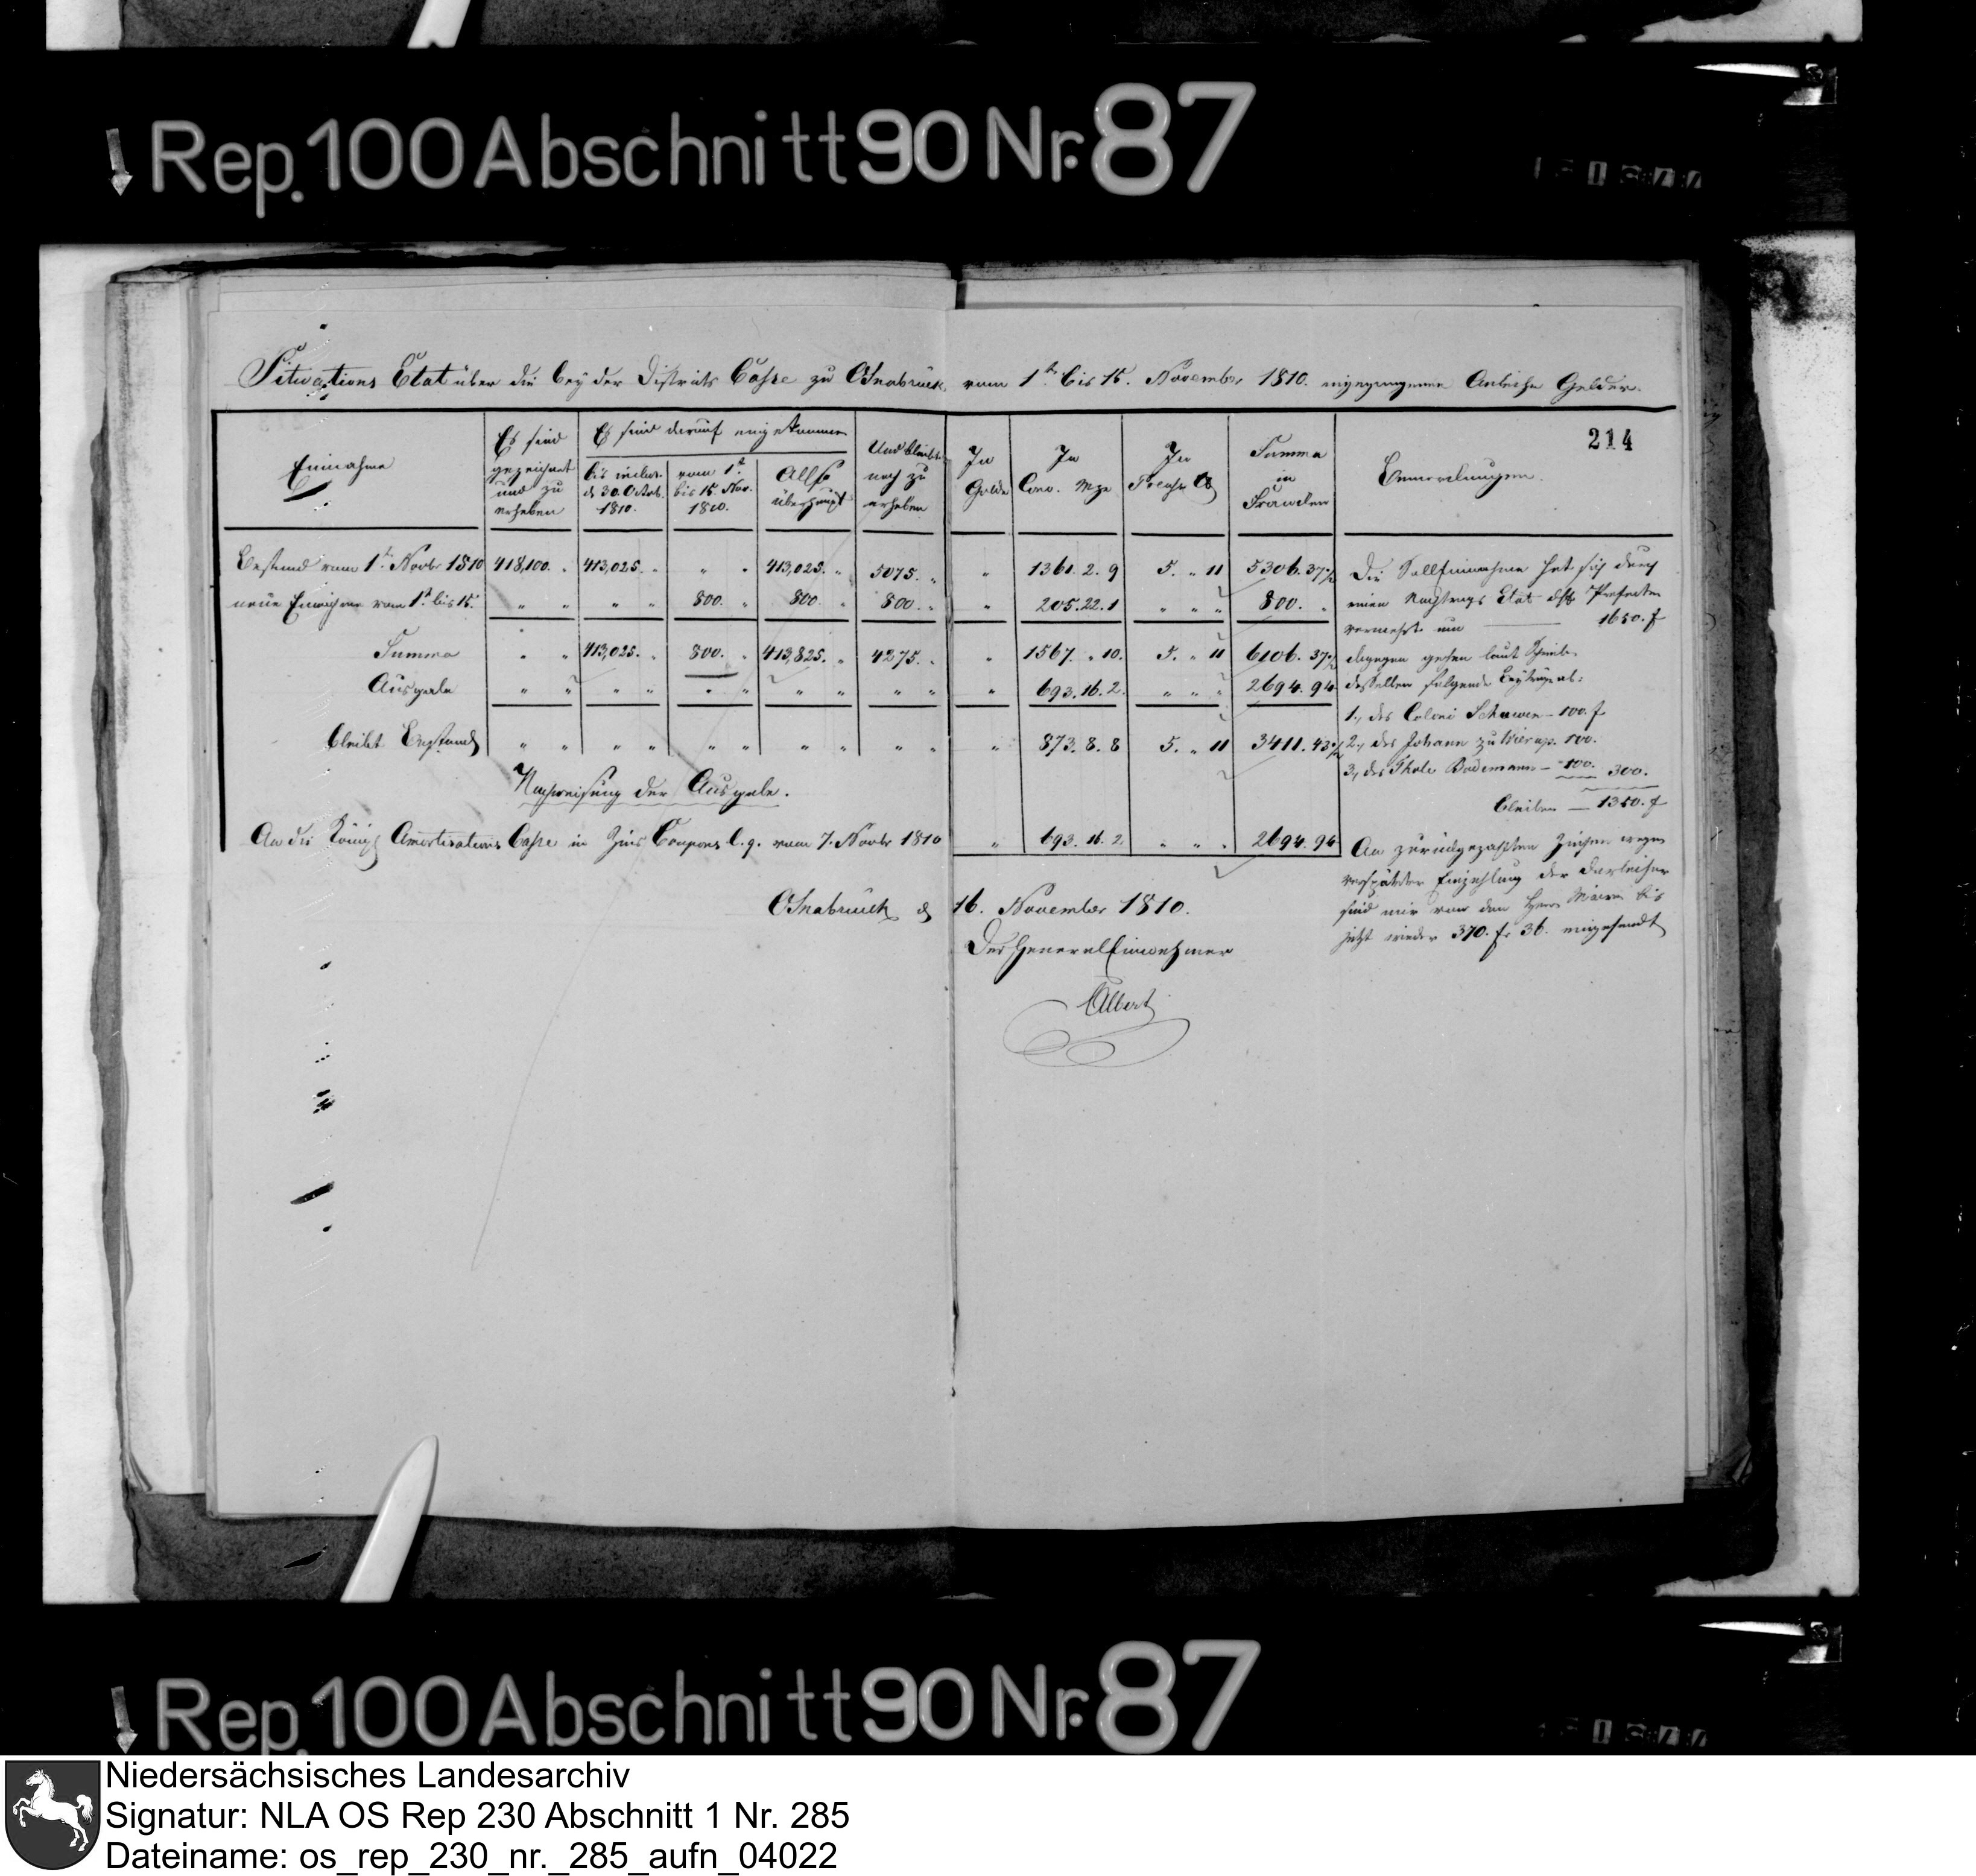 Rep. 100 Abschnitt 90 Nr. 87
Situations Etat über die bey der Districts Casse zu Osnabrück vom 1ten bis 15. November 1810. eingegangenen Anleihe Gelder.
214
Einnahme
Es sind gezeichnet und zu erheben
Es sind darauf eingekommen
bis inclus. d 30. Octob. 1810.
vom 1t. bis 15. Nov. 1810.
Allso überhaupt
Und bleibt noch zu erheben
In Golde
In Conv. Mze
In Preuss. Ct
Summa in Francken
Bemerckungen.
Bestand vom 1ten Novbr 1810 418,100. " 413,025. " " " 413,025. " 5075. " " 1361. 2. 9 5. " 11 5306. 37½
neue Einnahme vom 1t. bis 15. " " " " 800. " 800. " 800. " " 205. 22. 1 " " " 800. "
Summa " " 413,025. " 800. " 413,825. " 4275. " " 1567. " 10. 5. " 11 6106. 37½
Ausgabe " " " " " " " " " " " 693. 16. 2. " " " 2694. 94
bleibt Bestand " " " " " " " " " " " 873. 8. 8 5. " 11 3411. 43½
Nachweisung der Ausgabe.
An die Königl Amortisations Casse in Zins Coupons l. q. vom 7. Novbr 1810 " 693. 16. 2 " " " 2694. 94
Die Solleinnahme hat sich durch
einen Nachtrags Etat des Prefecten
vermehrt um 1650. f
dagegen gehen laut Schreib.
desselben folgende Beyträge ab:
1., des Coloni Schawen – 100. f
2., des Johann zu 100.
3., des Thole Bademann – 100. 300.
bleiben – 1350. f
An zurückgezahlten Zinsen wegen
verspäteter Einzahlung der Darleiher
sind mir von den Herrn Maires bis
jetzt wieder 370. fr 36. eingesandt
Osnabrück d 16. November 1810.
Der General Einnehmer
Albert
Rep. 100 Abschnitt 90 Nr. 87
Niedersächsisches Landesarchiv
Signatur: NLA OS Rep 230 Abschnitt 1 Nr. 285
Dateiname: os_rep_230_nr._285_aufn_04022